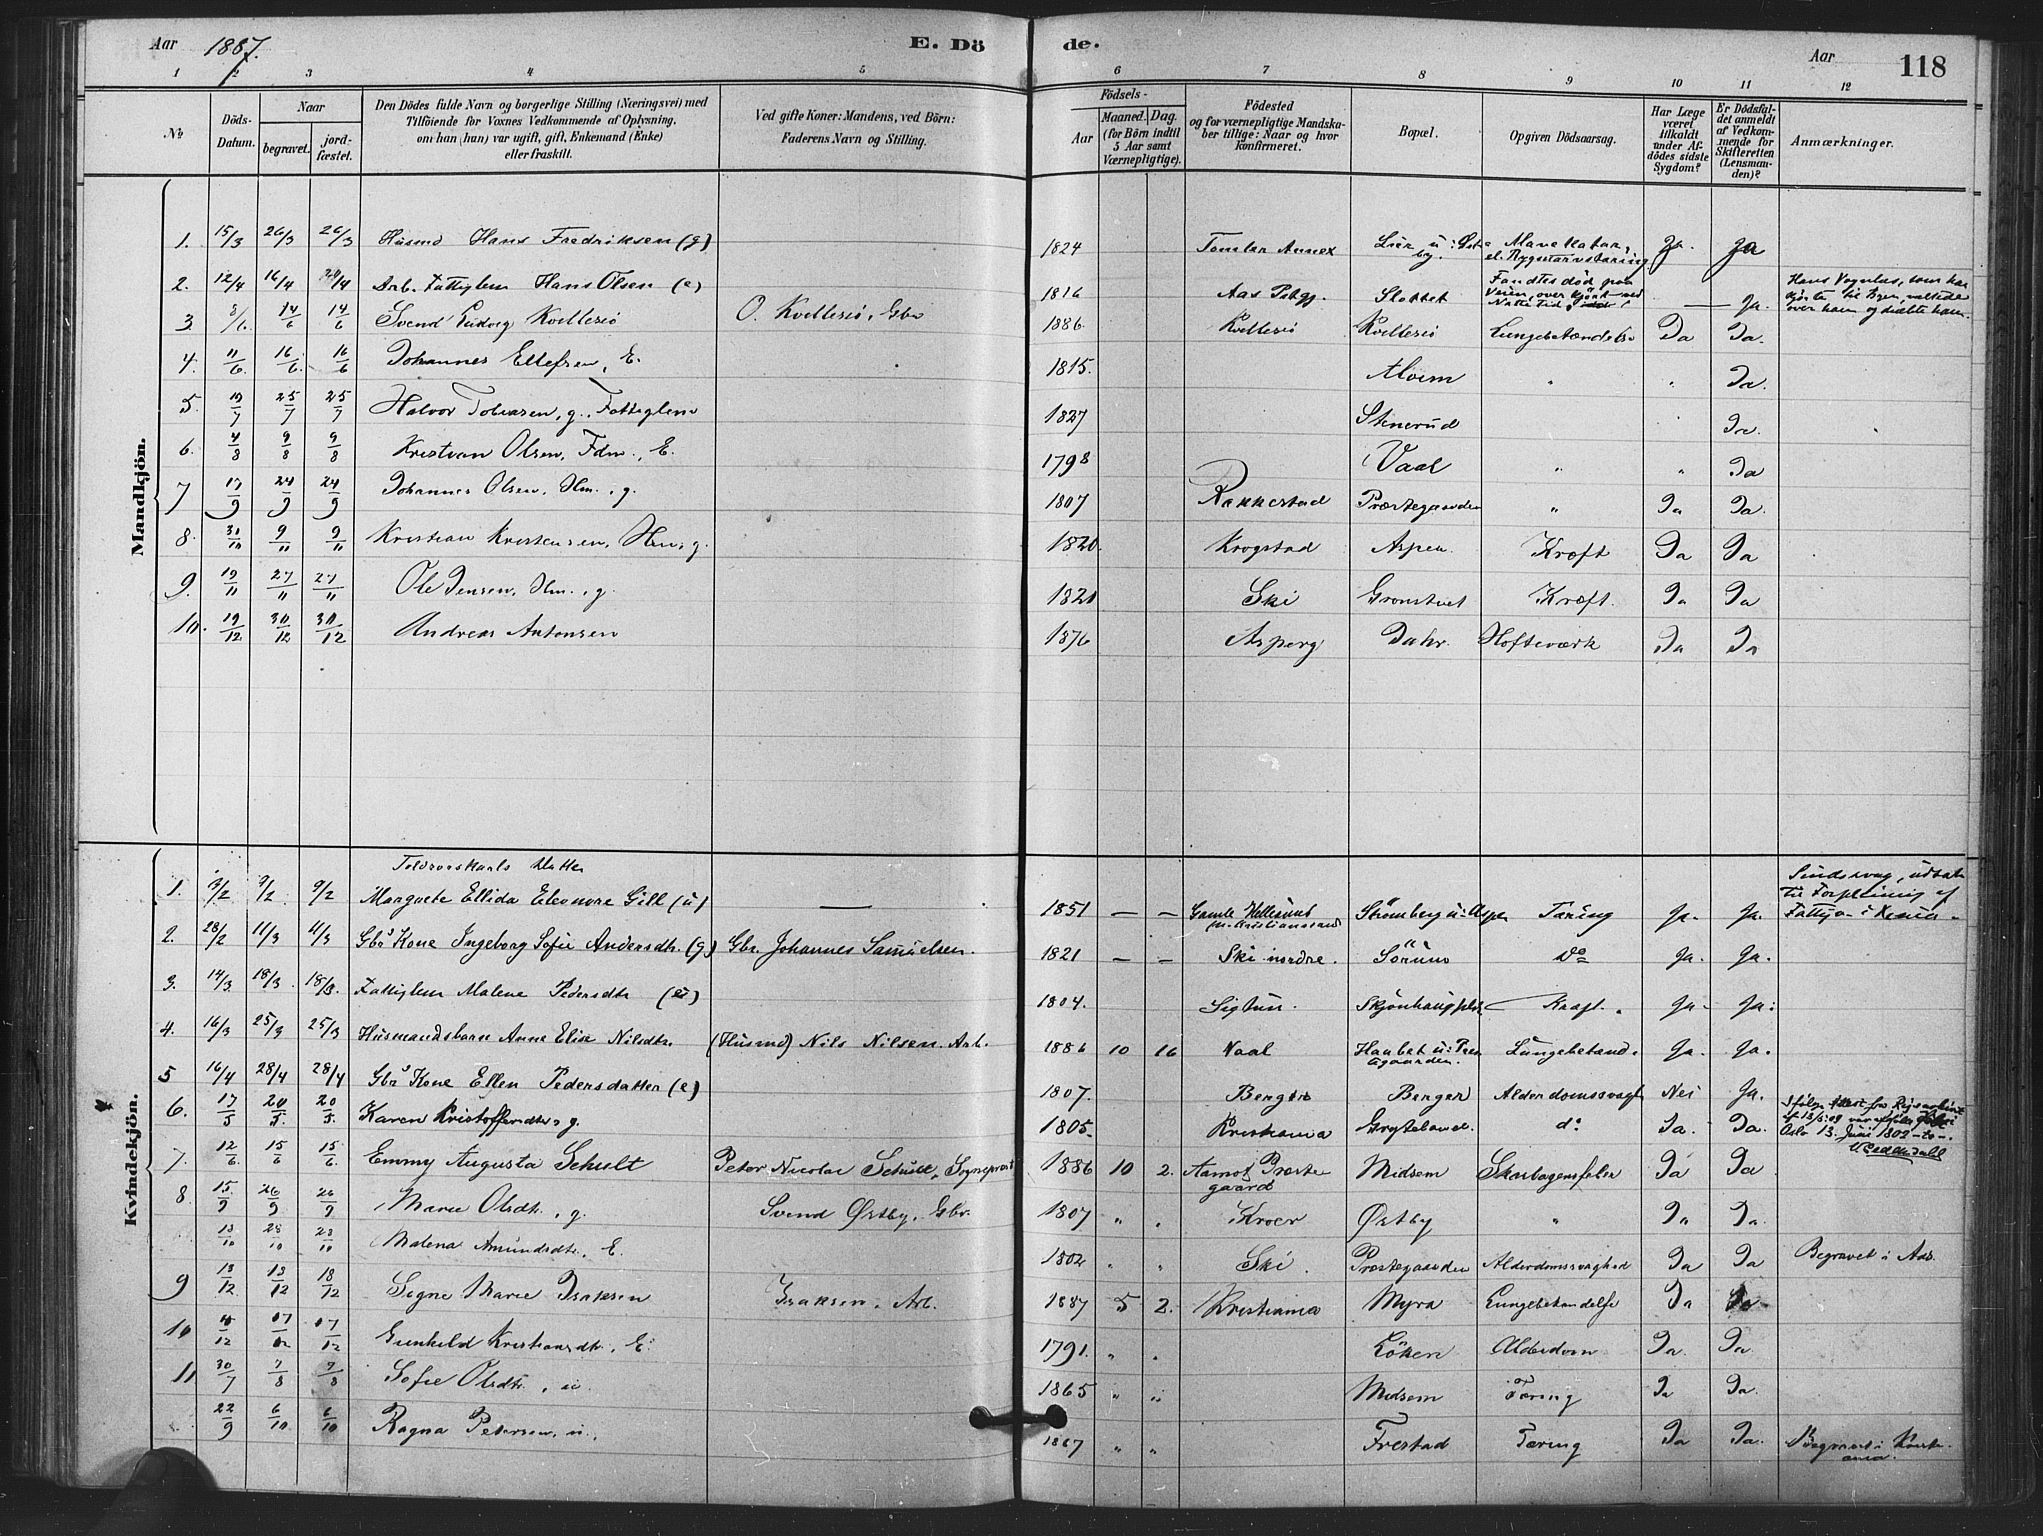 Aar 1887. E. Dö de. Aar 118
1 2 3 4 5 6 7 8 9 10 11 12
No
Döds-Datum.
Naar
begravet.
jord-fæstet.
Den Dödes fulde Navn og borgerlige Stilling (Næringsvei) med
Tilföiende for Voxnes Vedkommende af Oplysning,
om han (hun) var ugift, gift, Enkemand (Enke)
eller fraskilt.
Ved gifte Koner: Mandens, ved Börn:
Faderens Navn og Stilling.
Födsels-
Aar
Maaned. Dag.
(for Börn indtil
5 Aar samt
Værnepligtige).
Födested
og for værnepligtige Mandska-
ber tillige: Naar og hvor
konfirmeret.
Bopæl.
Opgiven Dödsaarsag.
Har Læge
været
tilkaldt
under Af-
dödes sidste
Sygdom?
Er Dödsfal-
det anmeldt
af Vedkom-
mende for
Skifteretten
(Lensman-
den)?
Anmærkninger.
Mandkjön.
1. 15/3 26/3 26/3 Husmd Hans Fredriksen (g) 1824 Tomter Annex Ja. Ja
2. 12/4 16/4 24/4 Arb. Fattiglem Hans Olsen (e) 1816 Aas Pstgj. Slottet Fandtes död paa Veien, over kjört ved Ja.
3. 8/6. 14/6 14/6 Svend Ludvig Kvellesiö O. Kvellesiö, Gbr 1886 Kvellesiö Kvellesiö Lungebetændelse Ja Ja.
4. 11/6. 16/6. 16/6 Johannes Ellefsen, E. 1815. Alvim " " Ja.
5. 19/7 25/7 25/7 Halvor Tobiasen, g., Fattiglem 1827 Stenerud Ja.
6. 4/8 9/8 9/8 Kristian Olsen, Fdm., E. 1798 Vaal " " Ja
7 17/9 24/9 24/9 Johannes Olsen, Hm., g. 1807 Rakkestad Præstegaarden " Ja Ja.
8. 31/10 9/11 9/11 Kristian Kristensen, Hm, g. 1820. Krogstad Aspen. Kræft Ja Ja
9. 19/11 27/11 27/11 Ole Jensen, Hm., g. 1821 Ski Grönstvet Kræft. Ja Ja
10. 19/12 30/12 30/12 Andreas Antonsen 1876 Asperg Dahr. Hofteværk Ja Ja
Kvindekjön.
Toldroerskarls Datter
1. 3/2 9/2. 9/2 Margrete Ellida Eleonore Gill (u) — 1851 — — Gamle Hellesund Strömberg u: Asp Tæring Ja. Ja. Sindssvag, udsat til Forpleining af
2. 28/2 11/3 11/3 Gbrs Kone Ingeborg Sofie Andersdtr. (g) Gbr. Johannes Samuelsen. 1821 — — Ski nordre. Sörum Do Ja. Ja.
3. 14/3 18/3. 18/3. Fattiglem Malene Pedersdtr 1804. Sigtun. Kræft. Ja. Ja.
4. 16/3 25/3 25/3 Husmandsbarn Anne Elise Nilsdtr. (Husmd) Nils Nilsen. Arb. 1886 10 16 Vaal Lungebetænd. Ja. Ja.
5 16/4 28/4 28/4 Gbrs Kone Ellen Pedersdatter (e) 1807. Berger Berger Alderdomssvagh Nei Ja.
6. 17/5 20/5. 20/5 Karen Kristoffersdtr, g. 1805. Kristiania Gryteland. do Ja. Ja. Oslo 13. Juni 1802
7. 12/6. 15/6 15/6. Emmy Augusta Schult Peter Nicolai Schult, Sognepræst 1886 10 2. Aamot Præstegaard Midsem Skarlagensfeber Ja Ja
8 15/9 26/9 26/9 Marie Olsdtr., g. Svend Østby, Gbr. 1807 " " Kroer Østby " Ja Ja.
13/10 28/10 28/10 Malena Amundsdtr., E. 1802 " " Ski. Præstegaarden Alderdomssvaghed Ja Ja Begravet i Aas
9 13/12. 18/12 18/12 Signe Marie Isaksen Isaksen, Arb. 1887 5 2. Kristiania Myra Lungebetændelse Ja Ja
10 Gunhild Kristiansdtr., E. 1791. " " Löken Alderdom Ja. Ja
11 30/7 7/8 7/8 Sofie Olsdtr., u. 1865 " " Midsem Tæring Ja Ja.
22/9 6/10 6/10 Ragna Petersen, u., 1867 " " Frestad Tæring Ja Ja. Begravet i Kristiania.